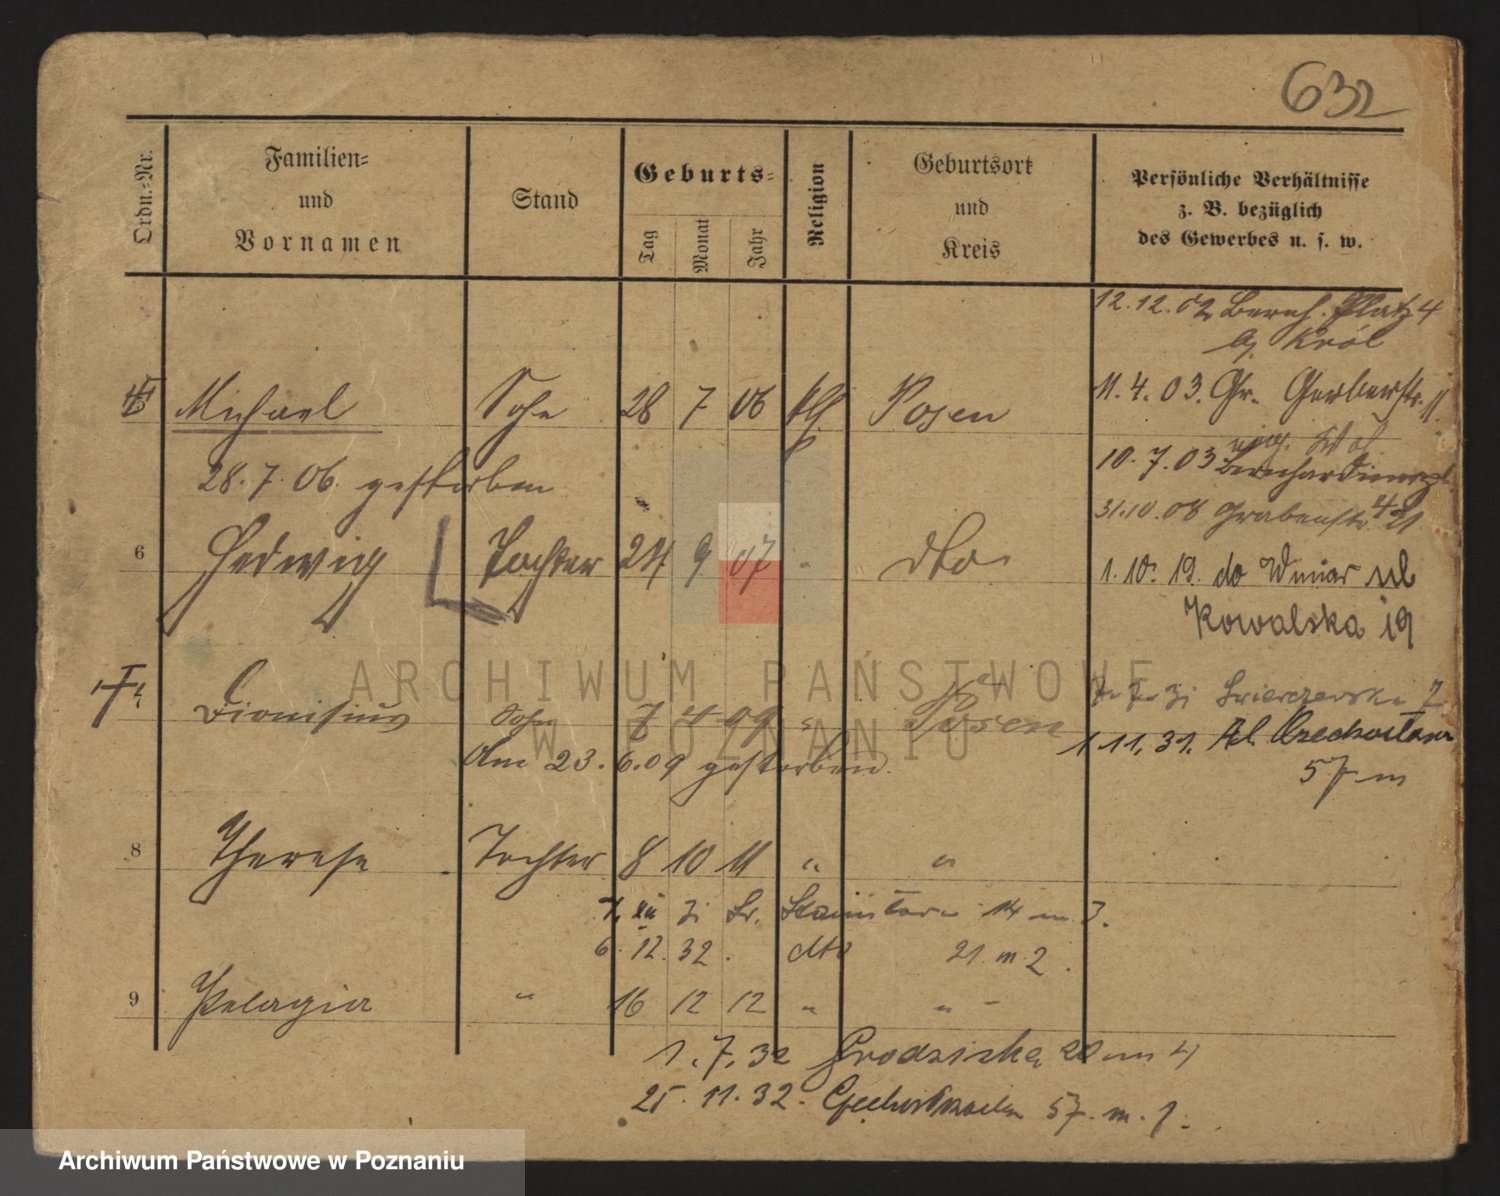 632
Ordn.-Nr.
Familien-
und
Vornamen
Stand
Geburts-
Tag
Monat
Jahr
Religion
Geburtsort
und
Kreis
Persönliche Verhältnisse
z. B. bezüglich
des Gewerbes u. s. w.
12.12.02 Bernh. Platz 4
b. Król
Michael Sohn 28 7 06 kth Posen
11.4.03. Gr. Gerberstr. 11.
28.7.06. gestorben
10.7.03 Bernhardinerpl
4
31.10.08 Grabenstr. 21
6 Hedwig Tochter 24 9 07 " dto
1.10. 19. do Winiar ul
Kowalska 19
Dionisius Sohn 7 4 09 " Posen
Am 23.6.09 gestorben.
1.11.31.
57 m
8 Therese Tochter 8 10 11 " "
7. XII 31 Sr. 14 m. 3.
6.12.32. dto 21 m 2.
9 Pelagia " 16 12 12 " "
1.7.32 Grodziska 20 m 4
25.11.32. 57. m. 1.
ARCHIWUM PAŃSTWOWE
W POZNANIU
Archiwum Państwowe w Poznaniu